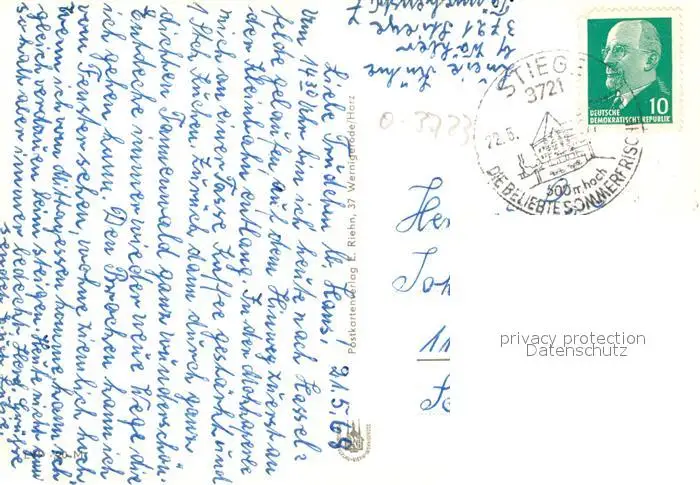 21.5.69
Liebe Trudchen u. Hans!
Um 14³⁰ Uhr bin ich heute nach Hassel-
felde gelaufen, auf dem Hinweg zuerst an
der Kleinbahn entlang. In der
mich an einer Tasse Kaffee gestärkt und
1 Stck. Kuchen. Zurück dann durch ganz
dichten Tannenwald ganz wunderschön.
Entdecke immer wieder neue Wege die
ich gehen kann. Den Brocken kann ich
vom Fenster sehen, wohne ziemlich hoch.
Wenn ich vom Mittagessen komme kann ich
gleich verdauen beim steigen. Heute nicht ganz
so kalt aber immer bedeckt. Herzl. Grüße
sendet Eure
3721 Stiege
Postkartenverlag E. Riehn, 37 Wernigerode/Harz
STIEGE
3721
22.5.
500 m hoch
DIE BELIEBTE SOMMERFRISCHE
DEUTSCHE
DEMOKRATISCHE REPUBLIK
10
0-3723
11
privacy protection
Datenschutz